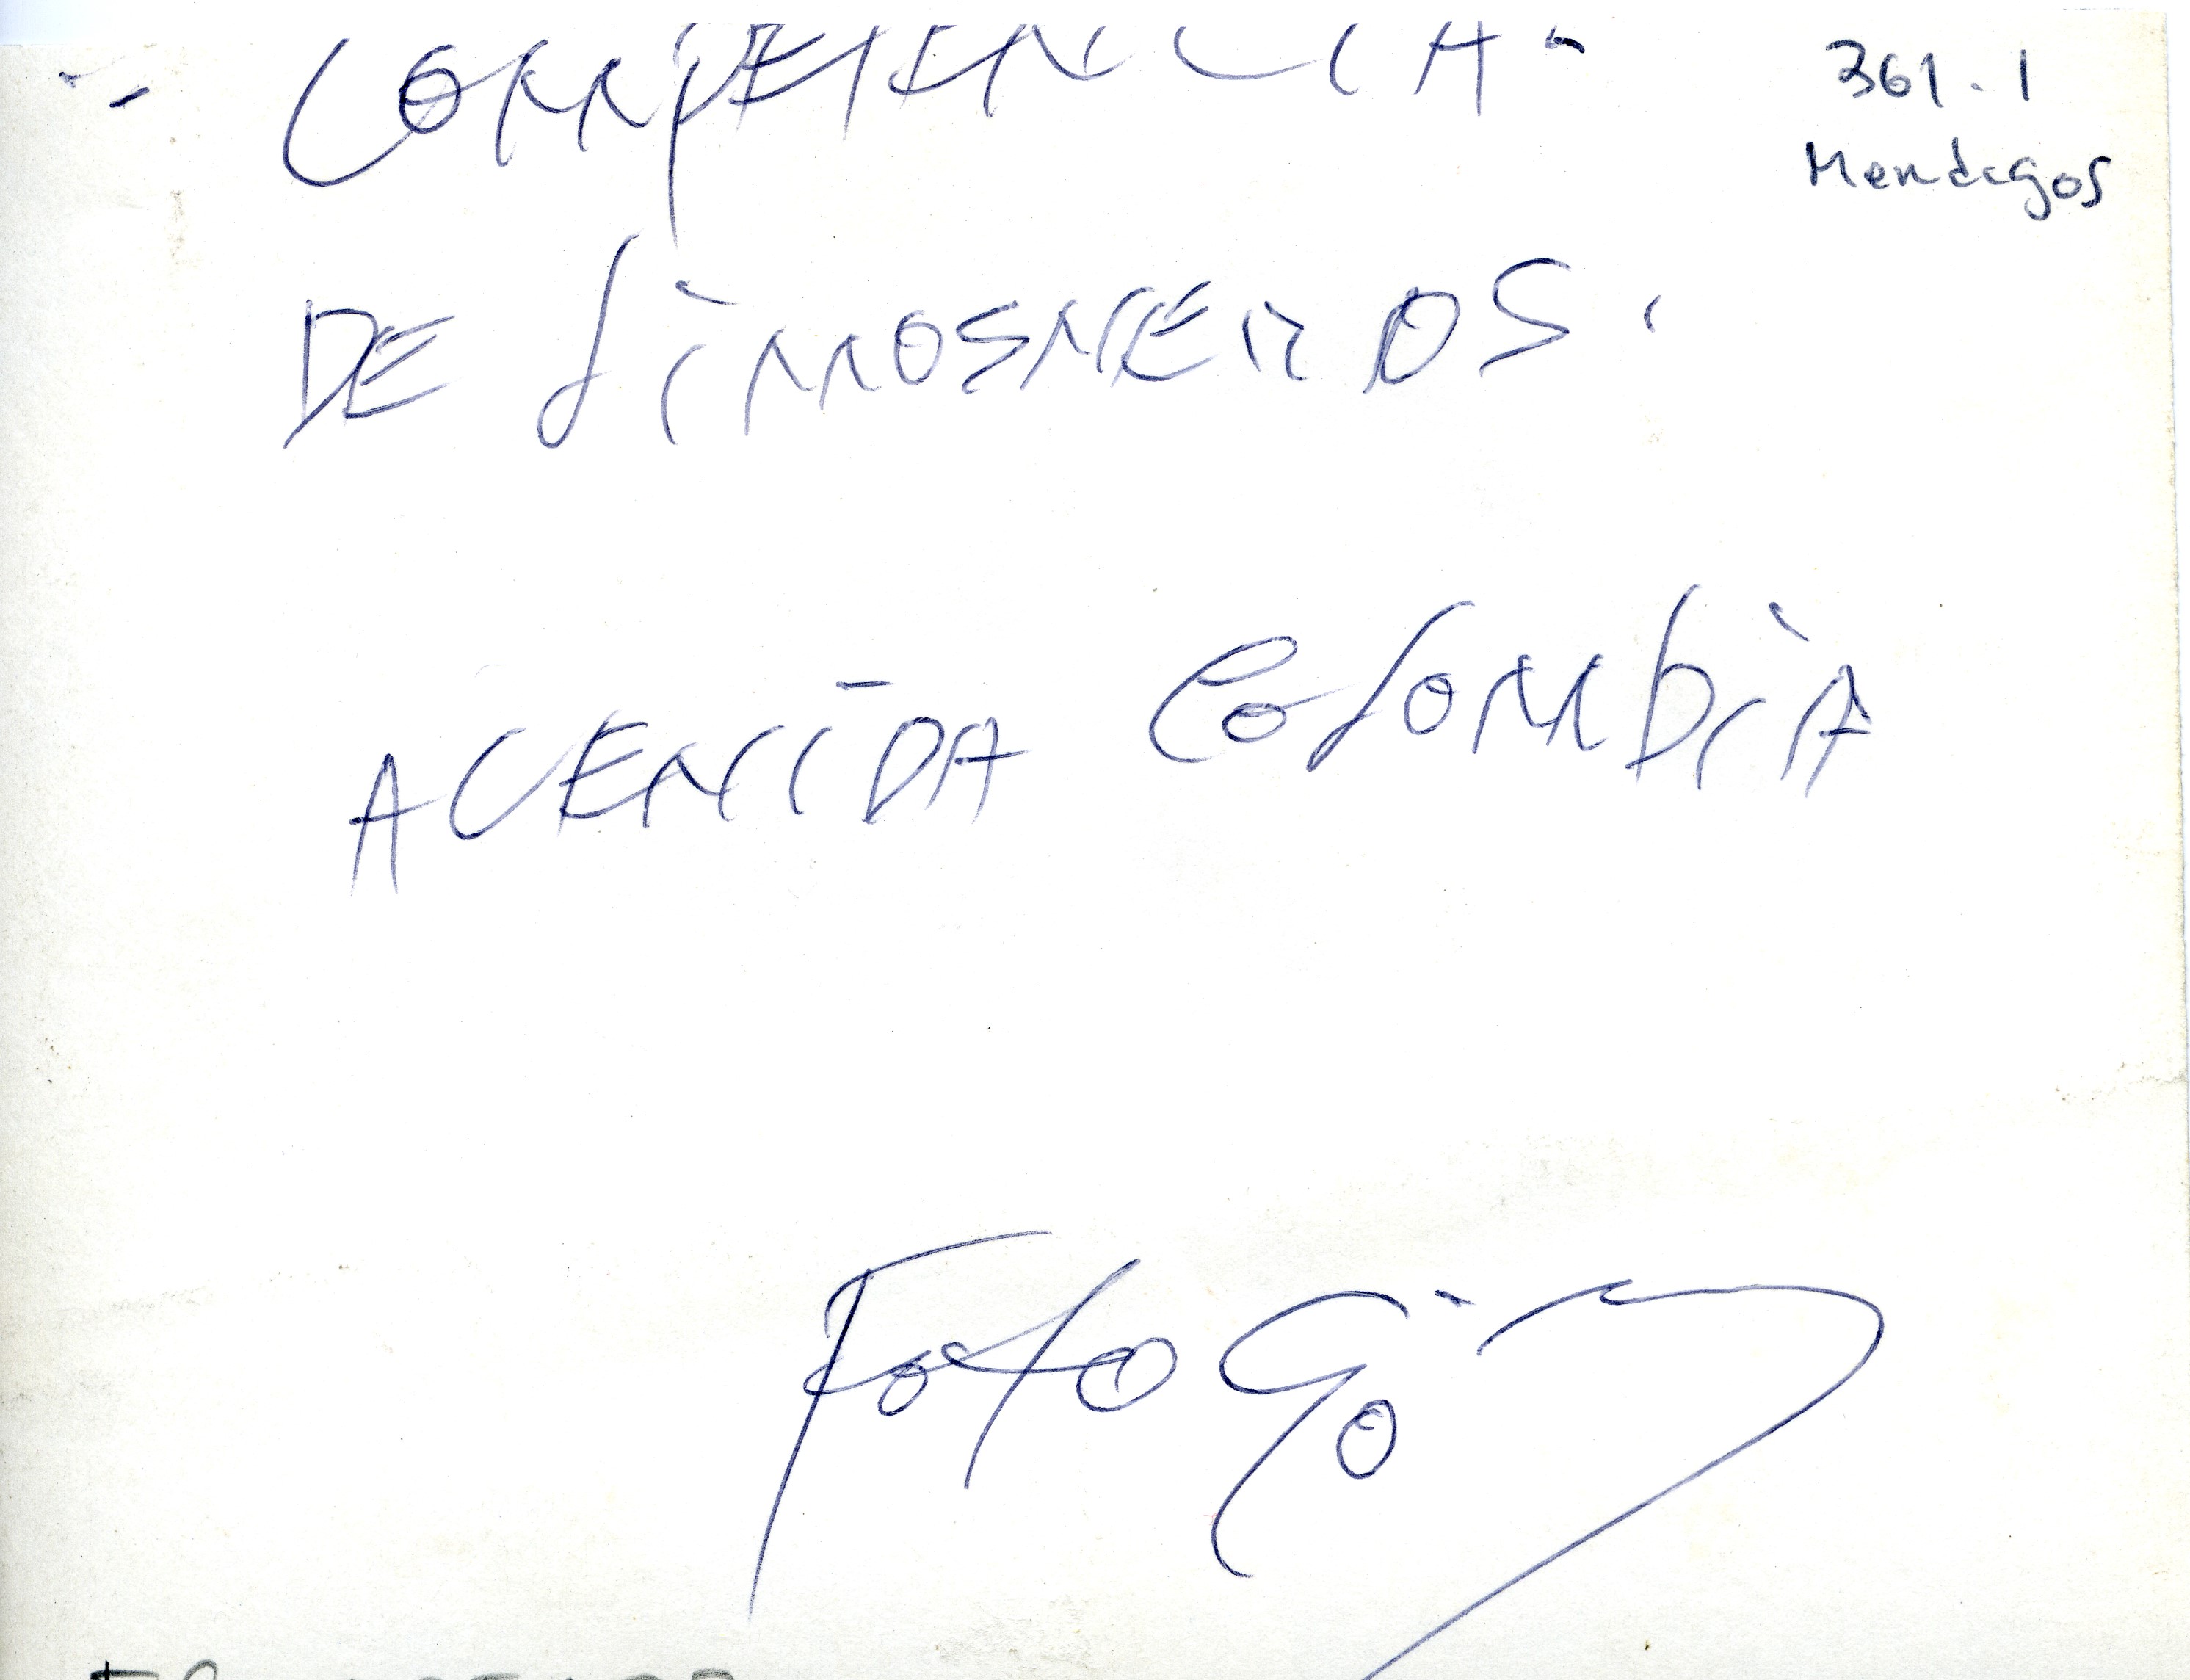 - COMPETENCIA -
361.1
Mendigos
DE LIMOSNEROS.
AVENIDA COLOMBIA
Foto Go